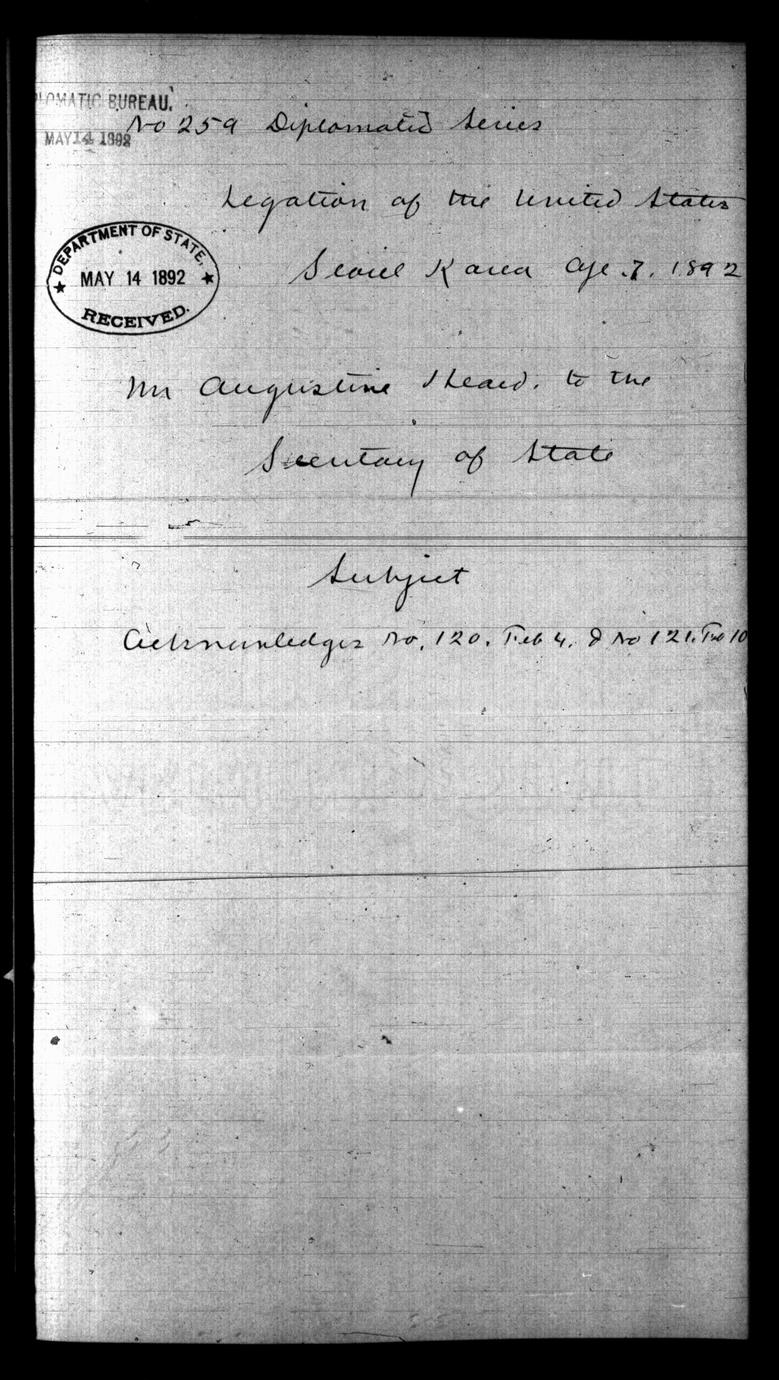 DIPLOMATIC BUREAU,
MAY 14 1892
No 259 Diplomatic Series
Legation of the United States
DEPARTMENT OF STATE,
MAY 14 1892
RECEIVED.
Seoul Korea Ap. 7. 1892
Mr Augustine Heard. to the
Secretary of State
Subject
Acknowledges No. 120. Feb 4. & No 121. Feb 10